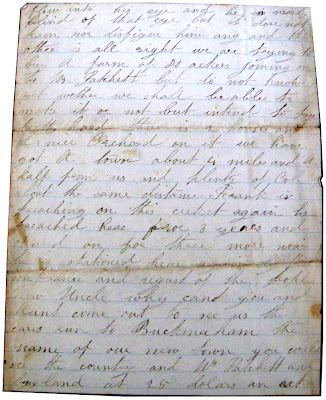 blew into his eye and he is near
blind of that eye but it dose not
him nor disfigur him any and the
other is all right we are trying to
buy a farm of 20 ackers joining on
to B. Patchett but to not know
yet wether we shall be able to
make it or not but intend to try
hard there is a house and
a nice Orchard on it we have
got a town about 4 mile and a
half from us and plenty of Co
bout the same distance Frank is
preaching on this circket again he
preached hear for 3 years and
on for three more now
be stationed hear
and regust of the
dear Uncle why cand you and
aunt come out to see us the
cars run to Buckingham the
name of our new town you could
see the country and Wm Patchett and
land at 25 dolars an acker